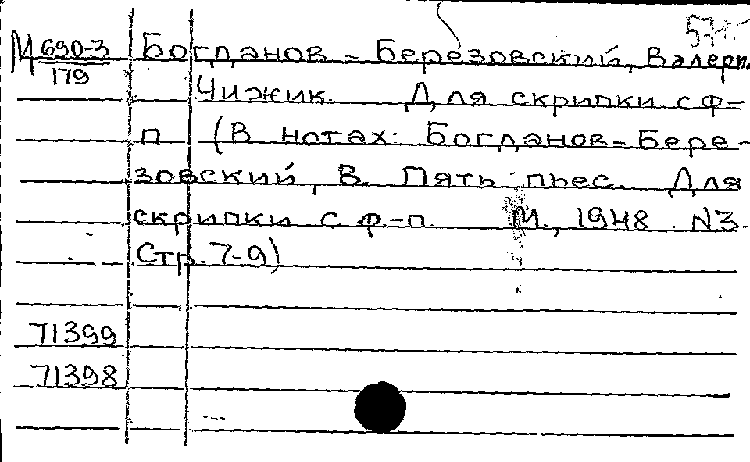 М 690-3 Богданов-Березовский, Валерп.
179
Чижик. Для скрипки с ф-
п (В нотах: Богданов-Бере-
зовский, В. Пять пьес. Для
скрипки с ф-п. М., 1948. N3.
Стр. 7-9)
71399
71398